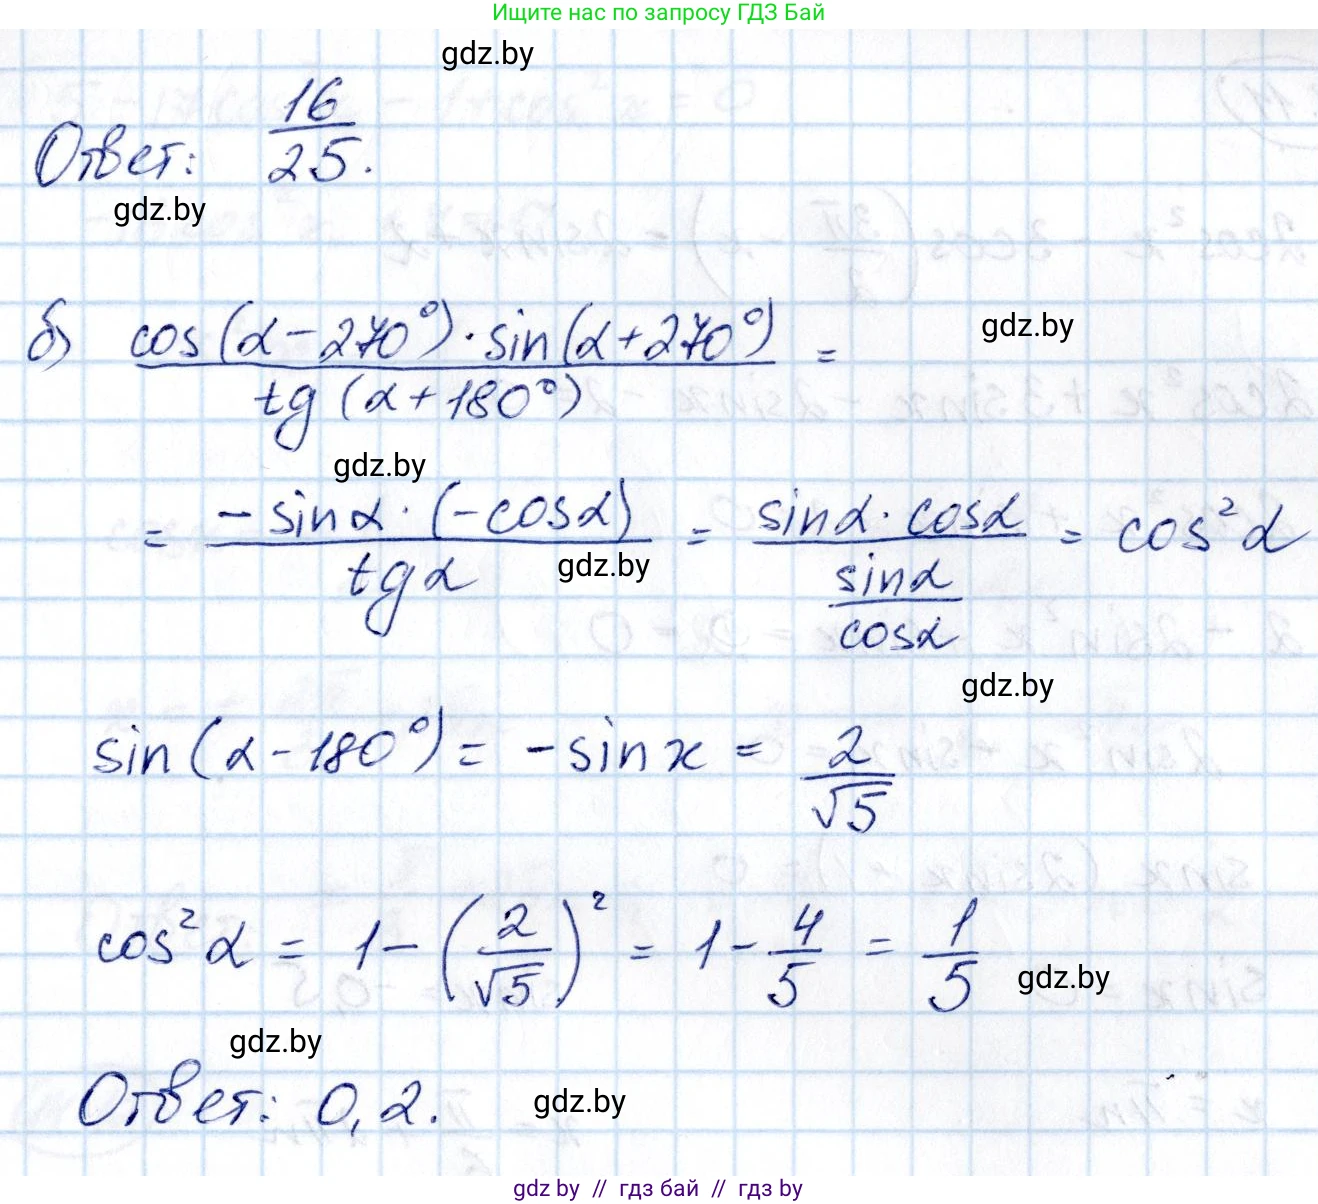 Ищите нас по запросу ГДЗ Бай
gdz.by
Ответ: 16/25.
gdz.by
б) cos(α-270°)·sin(α+270°) / tg(α+180°) =
gdz.by
gdz.by
= -sinα·(-cosα) / tgα = sinα·cosα / (sinα/cosα) = cos²α
gdz.by
gdz.by
sin(α-180°) = -sin x = 2/√5
cos²α = 1-(2/√5)² = 1-4/5 = 1/5
gdz.by
gdz.by
Ответ: 0,2.
gdz.by
gdz by // гдз бай // гдз by